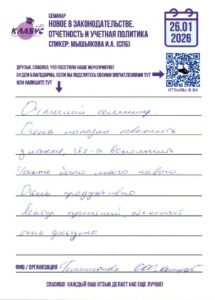 КЛАЗУС
СЕМИНАР
НОВОЕ В ЗАКОНОДАТЕЛЬСТВЕ.
ОТЧЕТНОСТЬ И УЧЕТНАЯ ПОЛИТИКА
СПИКЕР: МЫШЬЯКОВА И.А. (СПБ)
26.01
2026
ДРУЗЬЯ, СПАСИБО, ЧТО ПОСЕТИЛИ НАШЕ МЕРОПРИЯТИЕ!
БУДЕМ БЛАГОДАРНЫ, ЕСЛИ ВЫ ПОДЕЛИТЕСЬ СВОИМИ ВПЕЧАТЛЕНИЯМИ ТУТ
ИЛИ НАПИШИТЕ ТУТ
ОТЗЫВЫ В ВК
Отличный семинар.
Очень полезно освежить
знания, что-то вспомнили
Также было много нового.
Очень продуктивно
Лектор приятный, объясняет
очень доступно
ФИО / ОРГАНИЗАЦИЯ
СПАСИБО! КАЖДЫЙ ВАШ ОТЗЫВ ДЕЛАЕТ НАС ЕЩЕ ЛУЧШЕ!